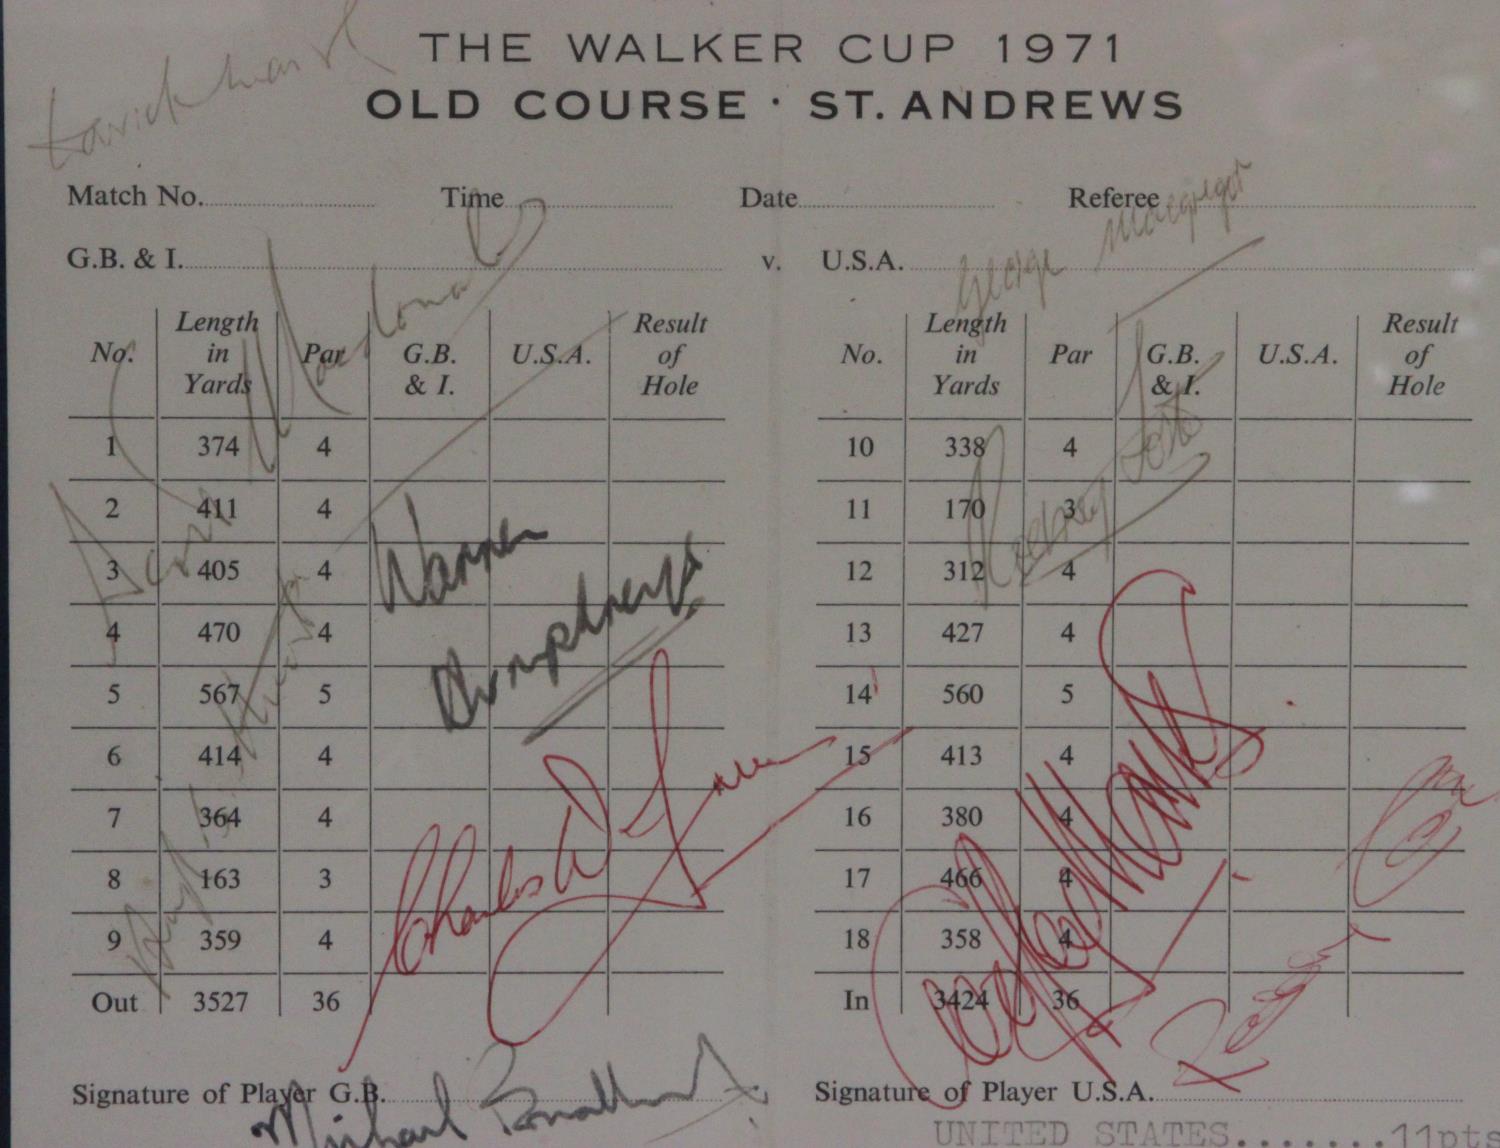 THE WALKER CUP 1971
OLD COURSE · ST. ANDREWS
Match No. Time Date Referee
George Macgregor
G.B. & I. v. U.S.A.
No. Length in Yards Par G.B. & I. U.S.A. Result of Hole No. Length in Yards Par G.B. & I. U.S.A. Result of Hole
1 374 4 10 338 4
2 411 4 11 170 3
3 405 4 12 312 4
4 470 4 13 427 4
5 567 5 14 560 5
6 414 4 15 413 4
7 364 4 16 380 4
8 163 3 17 466 4
9 359 4 18 358 4
Out 3527 36 In 3424 36
Warren
Humphreys
Rodney Foster
Charles W Green
Signature of Player G.B. Signature of Player U.S.A.
Michael Bonallack
UNITED STATES.......11pts